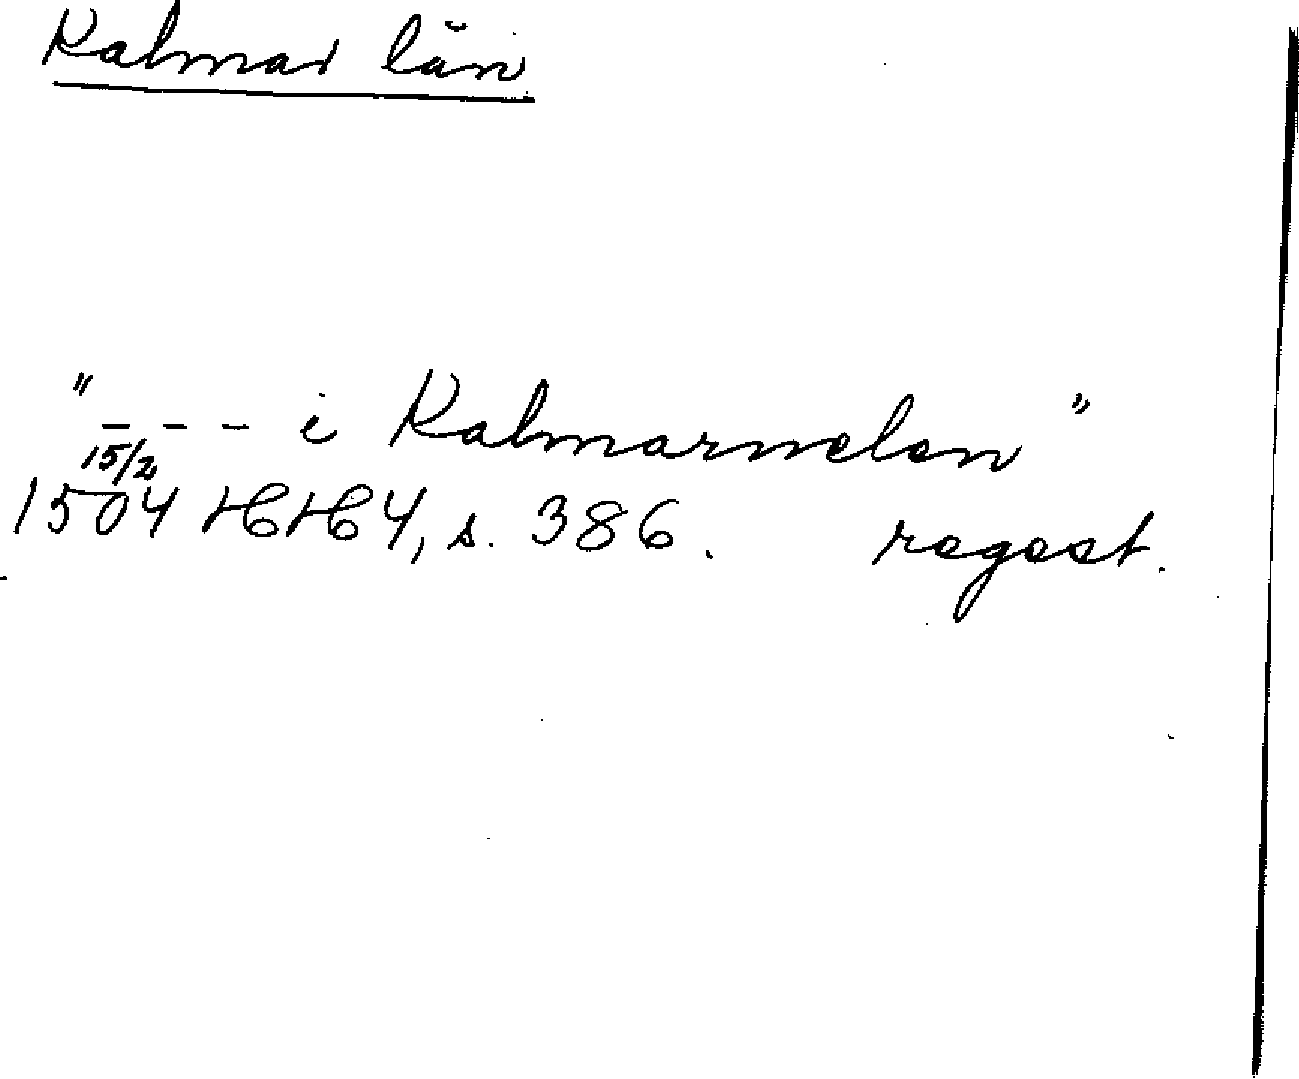 Kalmar län
"- - - i Kalmarnelen"
15/2
1504 HH 4, s. 386. regest.